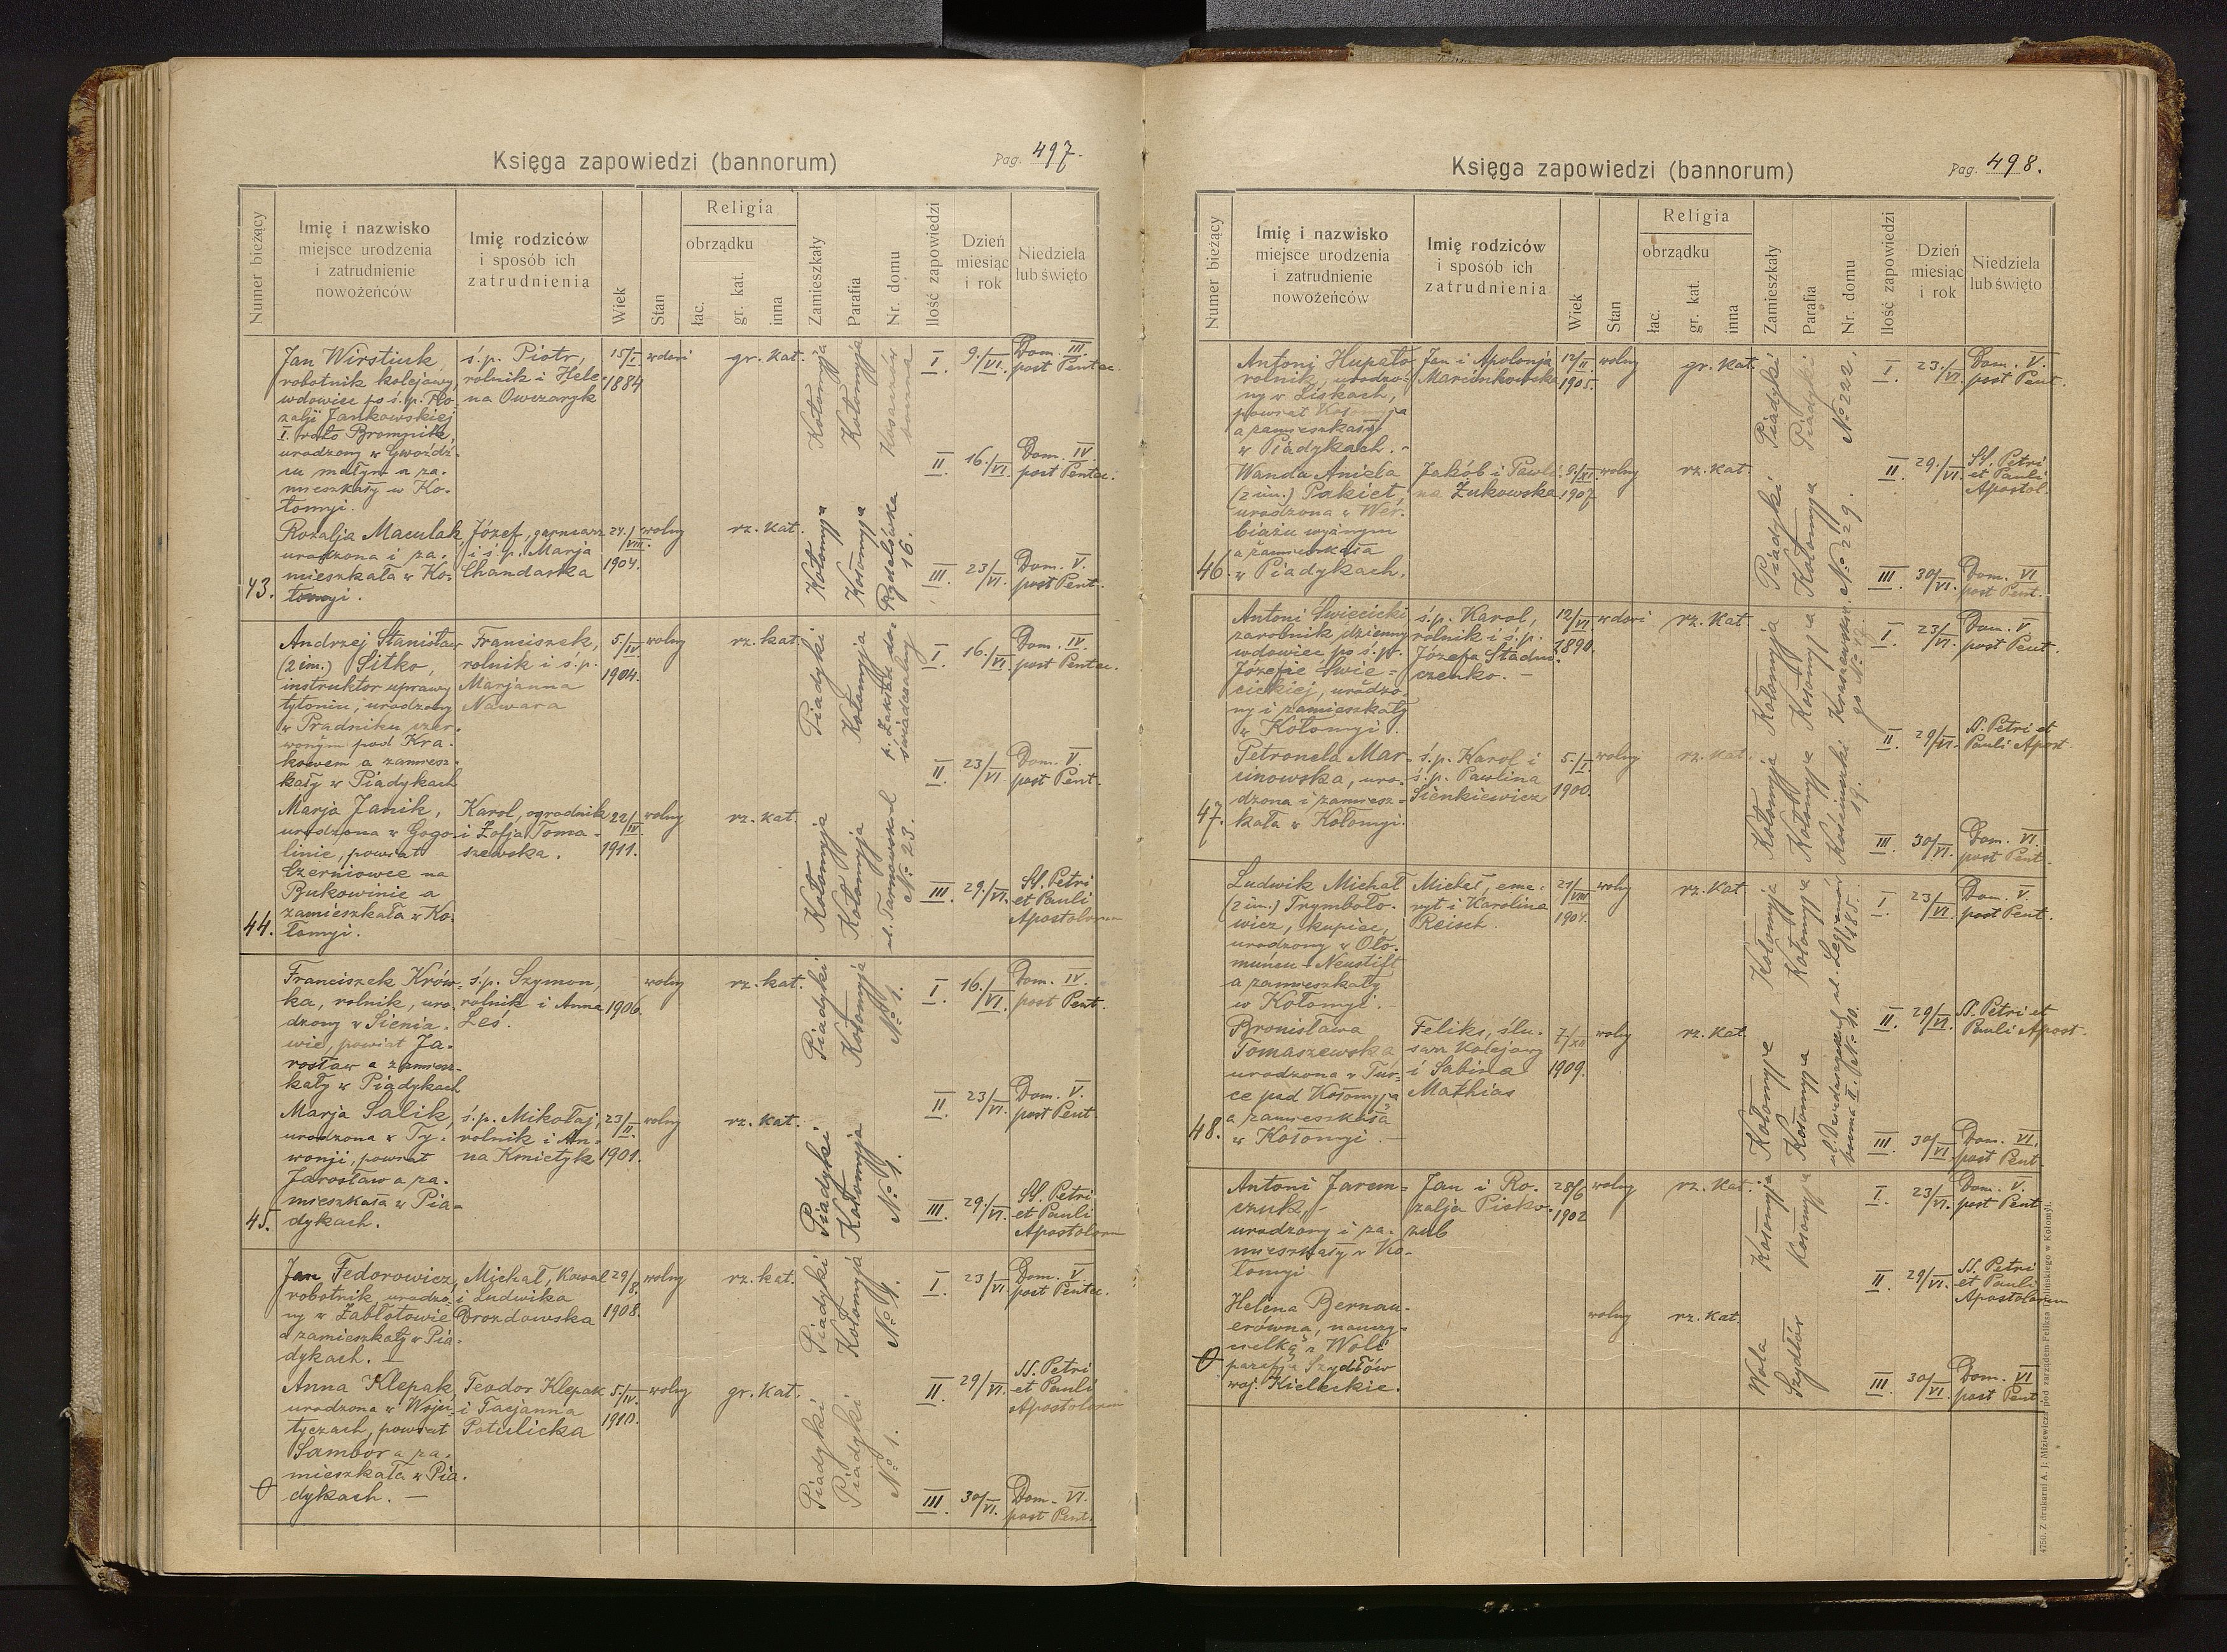 Księga zapowiedzi (bannorum)
Pag. 497.
Numer bieżący
Imię i nazwisko
miejsce urodzenia
i zatrudnienie
nowożeńców
Imię rodziców
i sposób ich
zatrudnienia
Wiek
Stan
Religia
obrządku
łac.
gr. kat.
inna
Zamieszkały
Parafia
Nr. domu
Ilość zapowiedzi
Dzień
miesiąc
i rok
Niedziela
lub święto
43.
Jan Wirstiuk,
robotnik kolejowy,
wdowiec po ś.p. Ro-
zalji Jankowskiej
I. voto Bromnik,
urodzony w Gwoźdź-
cu małym a za-
mieszkały w Ko-
łomyi.
ś.p. Piotr,
rolnik i Hele-
na Owczaryk
15/I. 1884
wdowi
gr. kat.
Kołomyja
Kołomyja
I. 9./VI. Dom. III. post Pentec.
II. 16./VI. Dom. IV. post Pentec.
III. 23/VI. Dom. V. post Pent.
Rozalja Maculak,
urodzona i za-
mieszkała w Ko-
łomyi.
Józef, garncarz
i ś.p. Marja
Chandaska
24./VIII. 1904.
wolny
rz. kat.
Kołomyja
Kołomyja
16.
44.
Andrzej Stanisław
(2 im.) Sitko,
instruktor uprawy
tytoniu, urodzony
w Prądniku czer-
wonym pod Kra-
kowem a zamiesz-
kały w Piadykach
Franciszek,
rolnik i ś.p.
Marjanna
Nawara
5./IV. 1904.
wolny
rz. kat.
Piadyki
Kołomyja
p. Zakład do-
świadczalny
I. 16./VI. Dom. IV. post Pentec.
II. 23/VI. Dom. V. post Pent.
III. 29./VI. SS. Petri et Pauli Apostolorum
Marja Janik,
urodzona w Gogo-
linie, powiat
Czerniowce na
Bukowinie a
zamieszkała w Ko-
łomyi.
Karol, ogrodnik
i Zofja Toma-
szewska.
22/IV. 1911.
wolny
rz. kat.
Kołomyja
Kołomyja
ul. Tarnowskich
No. 23.
45.
Franciszek Krów-
ka, rolnik, uro-
dzony w Sienia-
wie, powiat Ja-
rosław a zamiesz-
kały w Piadykach
ś.p. Szymon,
rolnik i Anna
Leś.
1906.
wolny
rz. kat.
Piadyki
Kołomyja
No. 1.
I. 16./VI. Dom. IV. post Pent.
II. 23/VI. Dom. V. post Pent.
III. 29./VI. SS. Petri et Pauli Apostolorum
Marja Salik,
urodzona w Ty-
wonji, powiat
Jarosław a za-
mieszkała w Pia-
dykach.
ś.p. Mikołaj,
rolnik i An-
na Kmietyk
23/II. 1901.
wolny
rz. kat.
Piadyki
Kołomyja
No. 1.
Jan Fedorowicz,
robotnik, urodzo-
ny w Zabłotowie
a zamieszkały w Pia-
dykach. —
Michał, kowal
i Ludwika
Drozdowska
29/8. 1908.
wolny
rz. kat.
Piadyki
Kołomyja
No. 1.
I. 23/VI. Dom. V. post Pentec.
II. 29/VI. SS. Petri et Pauli Apostolorum
III. 30/VI. Dom. VI. post Pent.
Anna Klepak,
urodzona w Woju-
tyczach, powiat
Sambor a za-
mieszkała w Pia-
dykach. —
Teodor Klepak
i Tacjanna
Potulicka
5./IV. 1910.
wolny
gr. kat.
Piadyki
Piadyki
No. 1.
Księga zapowiedzi (bannorum)
Pag. 498.
Numer bieżący
Imię i nazwisko
miejsce urodzenia
i zatrudnienie
nowożeńców
Imię rodziców
i sposób ich
zatrudnienia
Wiek
Stan
Religia
obrządku
łac.
gr. kat.
inna
Zamieszkały
Parafia
Nr. domu
Ilość zapowiedzi
Dzień
miesiąc
i rok
Niedziela
lub święto
46.
Antoni Hupało
rolnik, urodzo-
ny w Liskach,
powiat Kołomyja
a zamieszkały
w Piadykach. -
Jan i Apolonja
Marcinkowska
12/II. 1905.
wolny
gr. kat.
Piadyki
Piadyki
No 222.
I. 23./VI. Dom. V. post Pent.
II. 29./VI. SS. Petri et Pauli Apostol.
III. 30/VI. Dom. VI post Pent.
Wanda Aniela
(2 im.) Pakiet,
urodzona w Wer-
biążu wyżnym
a zamieszkała
w Piadykach.
Jakób i Pauli-
na Żukowska
9./XI. 1907
wolny
rz. kat.
Piadyki
Kołomyja
No. 229.
47.
Antoni Świecicki
zarobnik dzienny
wdowiec po ś.p.
Józefie Świe-
cickiej, urodzo-
ny i zamieszkały
w Kołomyi.
ś.p. Karol,
rolnik i ś.p.
Józefa Stadni-
czenko. —
12/VI. 1890.
wdowi
rz. kat.
Kołomyja
Kołomyja
I. 23/VI. Dom. V. post Pent.
II. 29/VI. SS. Petri et Pauli Apost.
III. 30/VI. Dom. VI. post Pent.
Petronela Mar-
cinowska, uro-
dzona i zamiesz-
kała w Kołomyi.
ś.p. Karol i
ś.p. Paulina
Sienkiewicz
5./I. 1900.
wolny
rz. kat.
Kołomyja
Kołomyja
19.
48.
Ludwik Michał
(2 im.) Trymboło-
wicz, kupiec,
urodzony w Oło-
muńcu - Neustift
a zamieszkały
w Kołomyi. -
Michał, eme-
ryt i Karolina
Reisch.
21/VIII 1904.
wolny
rz. kat.
Kołomyja
Kołomyja
ul. Legjonów
185.
I. 23/VI. Dom. V. post Pent.
II. 29/VI. SS. Petri et Pauli Apost.
III. 30/VI. Dom. VI. post Pent.
Bronisława
Tomaszewska
urodzona w Tur-
ce pod Kołomyją
a zamieszkała
w Kołomyi. —
Feliks, ślu-
sarz kolejowy
i Sabina
Mathias
7/XII 1909.
wolny
rz. kat.
Kołomyja
Kołomyja
No. 10.
Antoni Jarem-
czuk, -
urodzony i za-
mieszkały w Ko-
łomyi
Jan i Ro-
zalja Pisko-
zub
28/6 1902
wolny
rz. kat.
Kołomyja
Kołomyja
I. 23/VI. Dom. V. post Pent
II. 29/VI. SS. Petri et Pauli Apostolorum
III. 30/VI. Dom. VI post Pent
Helena Bernau-
erówna, nauczy-
cielka z Woli
parafja Szydłów
woj. Kieleckie.
wolny
rz. kat.
Wola
Szydłów
4750. Z drukarni A. J. Miziewicza pod zarządem Feliksa Zielińskiego w Kołomyi.